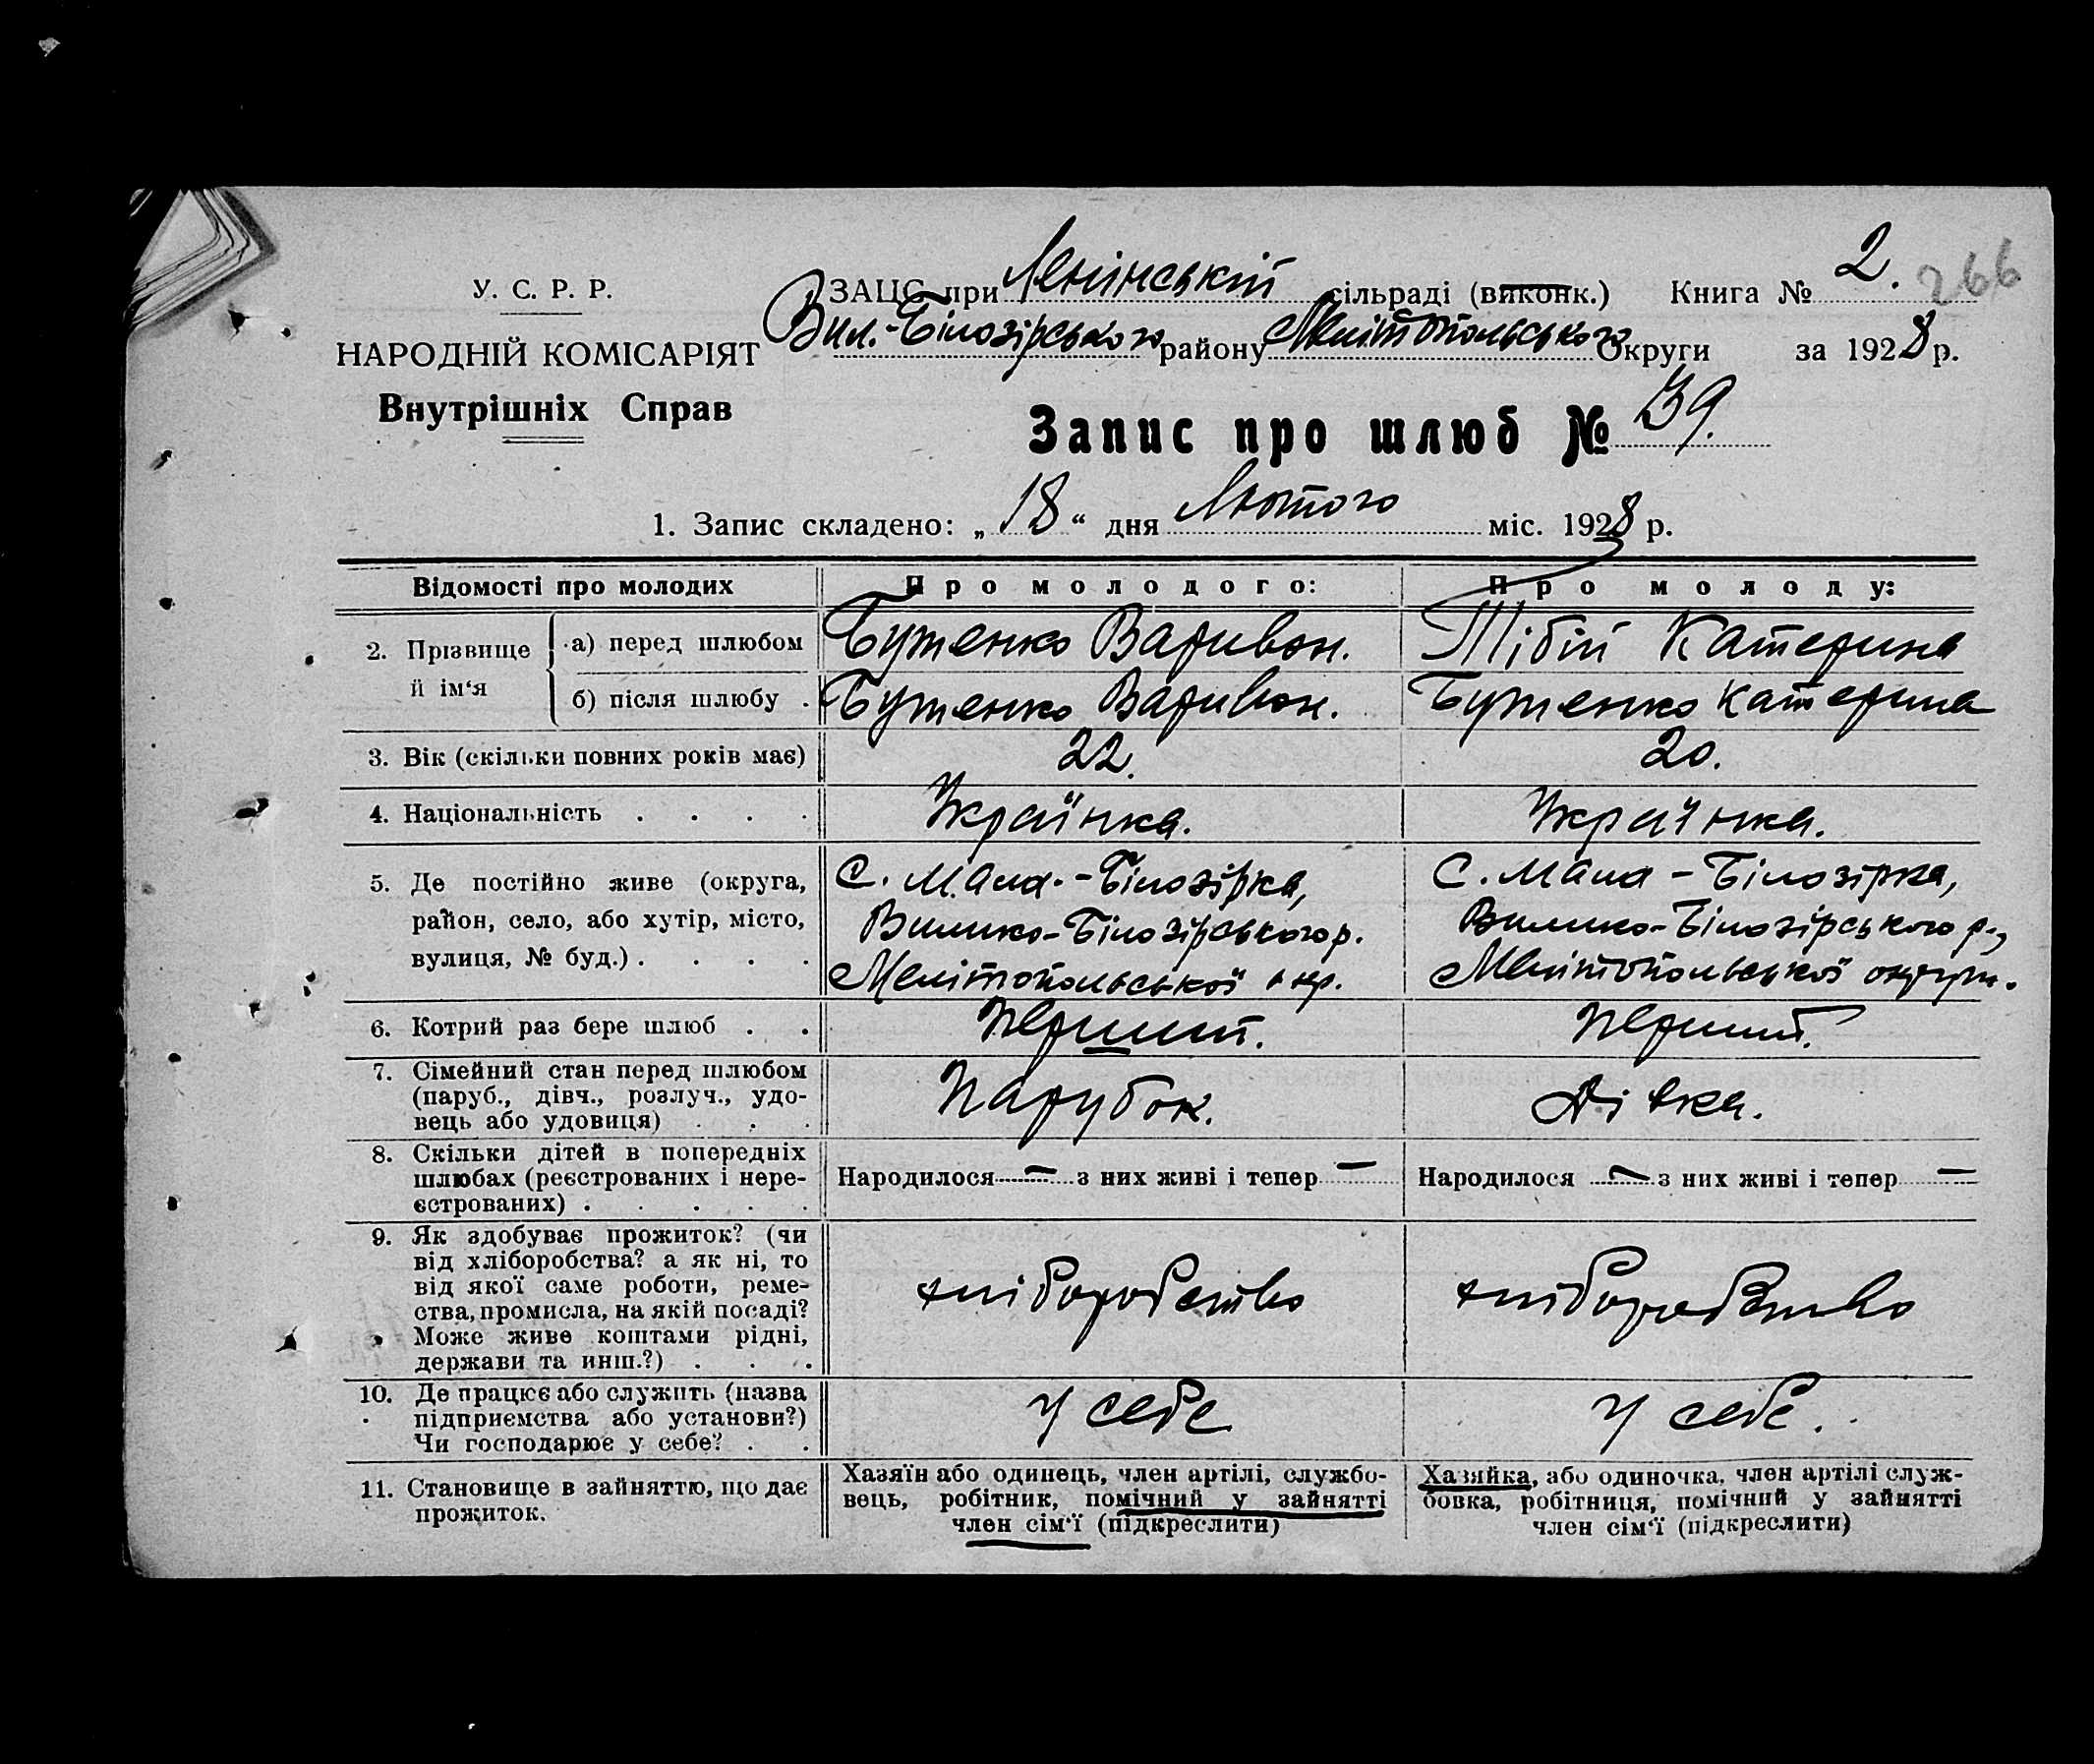 У. С. Р. Р.
НАРОДНІЙ КОМІСАРІЯТ
Внутрішніх Справ
ЗАЦС при Ленінській сільраді (виконк.) Книга № 2. 266
Вил.-Білозірського району Мелітопольського Округи за 1928 р.
Запис про шлюб № 39.
1. Запис складено: „ 18 “ дня Лютого міс. 1928 р.
Відомості про молодих Про молодого: Про молоду:
2. Прізвище й ім‘я
а) перед шлюбом Бутенко Варивон. Тібій Катерина
б) після шлюбу . Бутенко Варивон. Бутенко Катерина
3. Вік (скільки повних років має) 22. 20.
4. Національність . . . . Українка. Українка.
5. Де постійно живе (округа,
район, село, або хутір, місто,
вулиця, № буд.) . . . .
С. Мала.-Білозірка,
Вилико-Білозірського р.
Мелітопольської окр.
С. Мала-Білозірка,
Вилико-Білозірського р.,
Мелітопольської округи.
6. Котрий раз бере шлюб . . Перший. Перший.
7. Сімейний стан перед шлюбом
(паруб., дівч., розлуч., удо-
вець або удовиця) . . .
Парубок. Дівка.
8. Скільки дітей в попередніх
шлюбах (реєстрованих і нере-
єстрованих) . . . . .
Народилося — з них живі і тепер — Народилося — з них живі і тепер —
9. Як здобуває прожиток? (чи
від хліборобства? а як ні, то
від якої саме роботи, реме-
ства, промисла, на якій посаді?
Може живе коштами рідні,
держави та инш.?) . . .
хліборобство хліборобство
10. Де працює або служить (назва
підприємства або установи?)
Чи господарює у себе? . .
у себе у себе.
11. Становище в зайняттю, що дає
прожиток.
Хазяїн або одинець, член артілі, службо-
вець, робітник, помічний у зайнятті
член сім‘ї (підкреслити)
Хазяйка, або одиночка, член артілі служ-
бовка, робітниця, помічний у зайнятті
член сім‘ї (підкреслити)